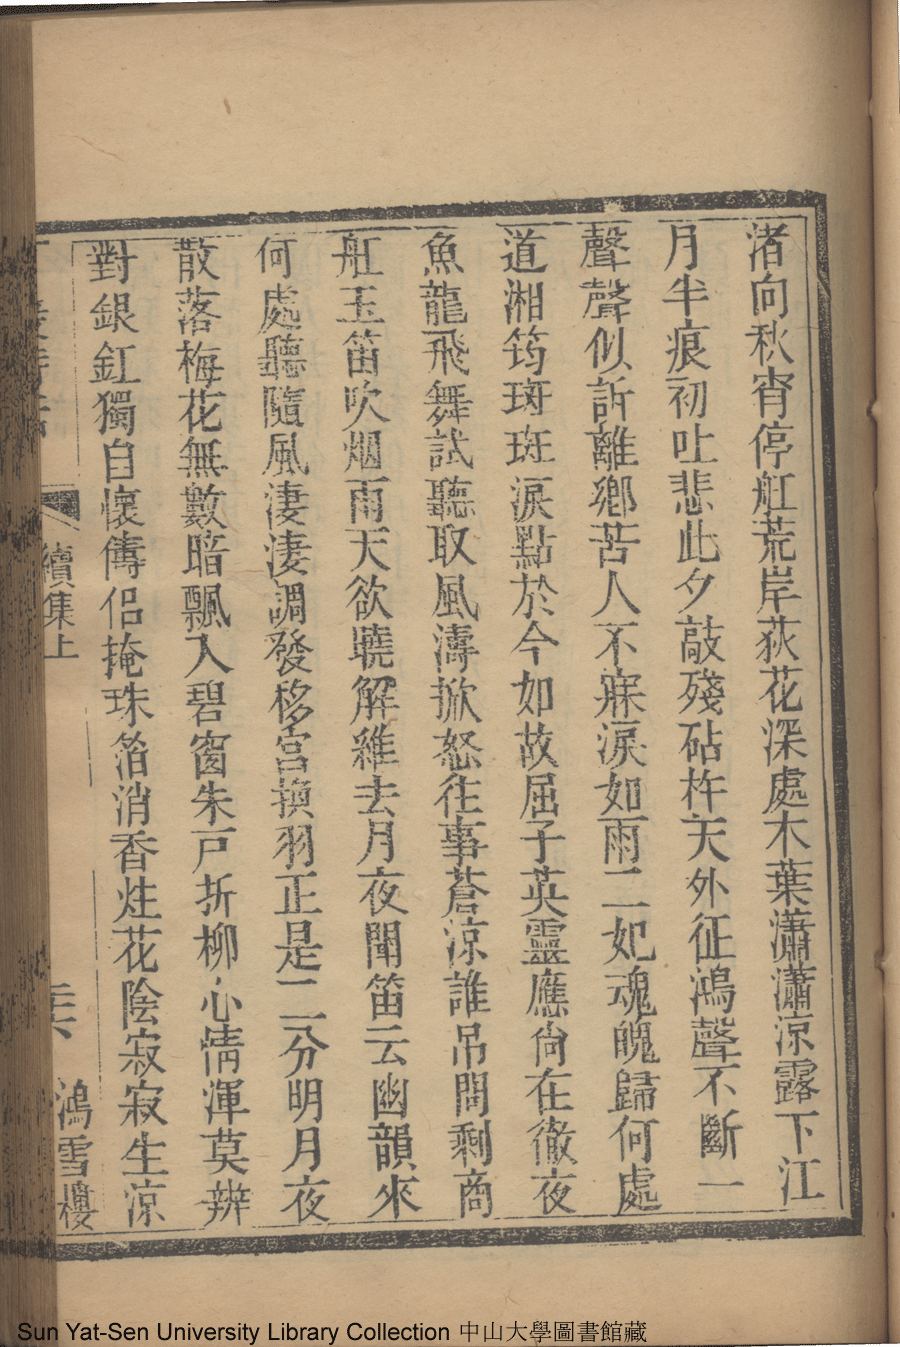 渚向秋宵停舡荒岸荻花深處木葉瀟瀟涼露下江
月半痕初吐悲此夕敲殘砧杵天外征鴻聲不斷一
聲聲似訴離鄉苦人不寐淚如雨二妃魂魄歸何處
道湘筠斑斑淚點於今如故屈子英靈應尙在徹夜
魚龍飛舞試聽取風濤掀怒往事蒼涼誰吊問剩商
舡玉笛吹烟雨天欲曉解維去月夜聞笛云幽韻來
何處聽隨風淒淒調發移宮換羽正是二分明月夜
散落梅花無數暗飄入碧窗朱戸折柳心情渾莫辨
對銀釭獨自懷儔侶掩珠箔消香炷花陰寂寂生涼
續集上
鴻雪樓
Sun Yat-Sen University Library Collection 中山大學圖書館藏